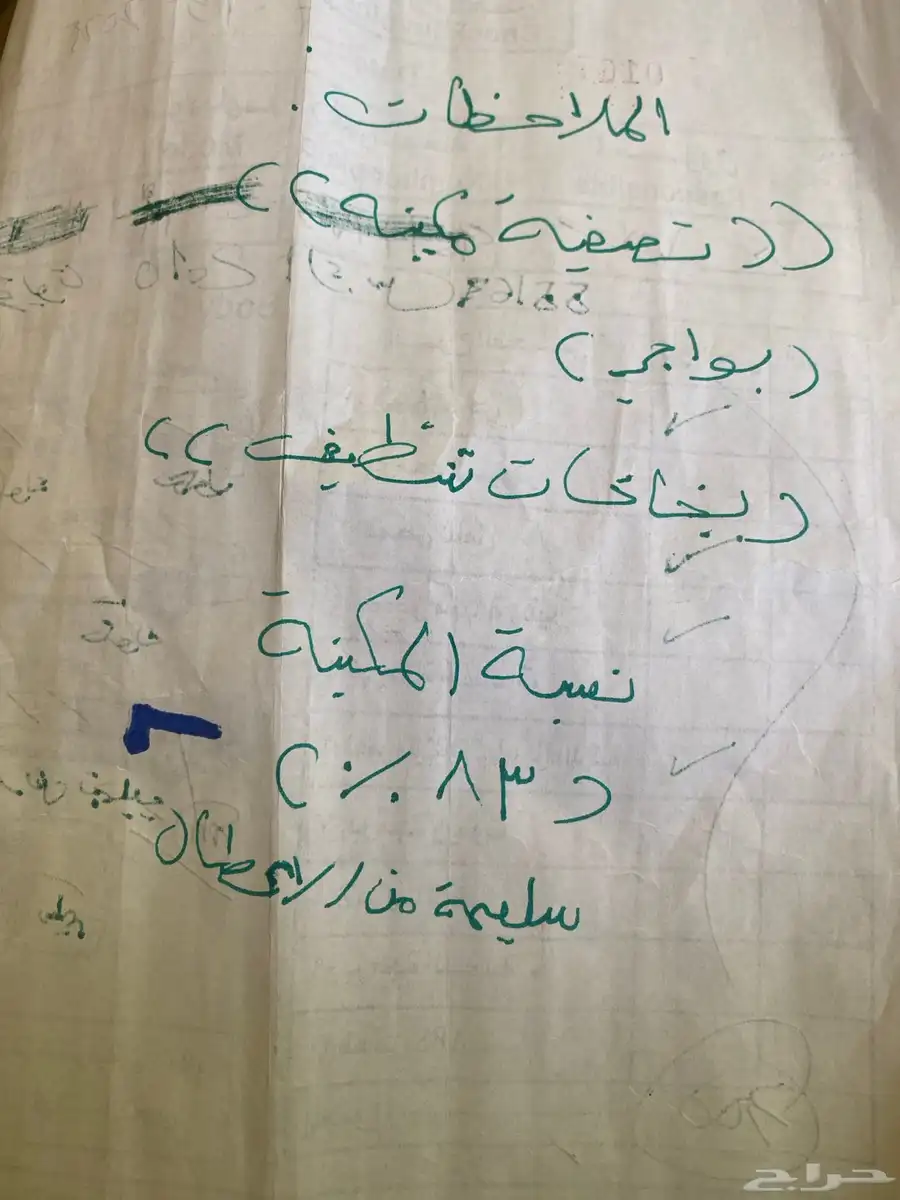 الملاحظات .
(( تصفية مكينه ))
( بواجي )
( بخاخات تنظيف ))
نسبة المكينة
( ٨٣ ٪ )
سليمة من الاعطال
حراج